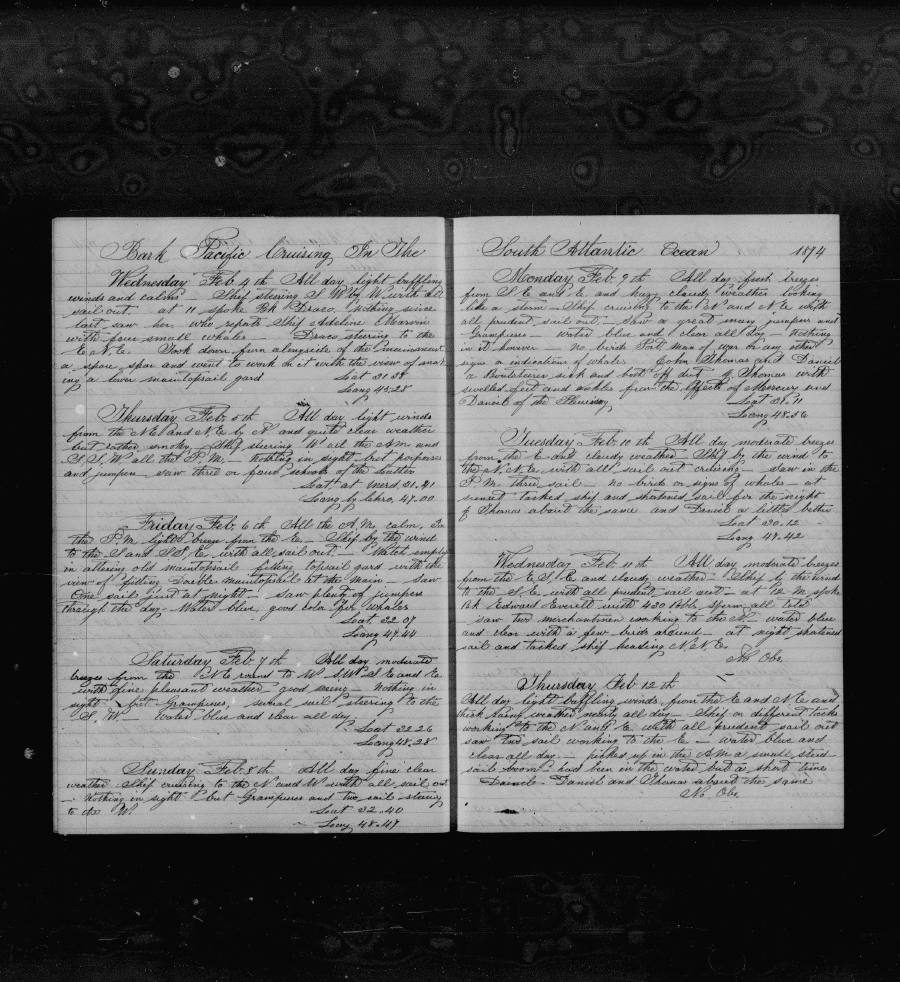 Bark Pacific Cruising In The
Wednesday Feb. 4th All day light baffling
winds and calms Ship steering S W by W with all
sail out at 11 spoke Bk Draco, nothing since
last saw her who reports Ship Adeline Marvin
with four small whales Draco steering to the
E N E. Took down from alongside of the mainmast
a spare spar and went to work on it with the view of mak
ing a lower maintopsail yard Lat 21.32
Long 45.28
Thursday Feb. 5th All day light winds
from the N E and N E by N and quite clear weather
but rather smoky Ship steering W all the A M and
S S W all the P. M. Nothing in sight but porpoises
and jumpers saw three or four schools of the latter
Lat at Merd. 21.41
Long by Chro. 47.00
Friday Feb. 6th All the A. M. calm, In
the P. M. light breeze from the E. Ship by the wind
to the S and S S E with all sail out. Watch employ
in altering old maintopsail fitting topsail yard with the
view of fitting double maintopsail at the main saw
One sail just at night saw plenty of jumpers
through the day Water blue, good color for whales
Lat. 22 07
Long 47.44
Saturday Feb 7th All day moderate
breezes from the N E round to W S W S E and E.
with fine pleasant weather good seeing Nothing in
sight but Grampuses, several sail steering to the
S. W. Water blue and clear all day
Lat 22 26
Long 48.28
Sunday Feb. 8th All day fine clear
weather Ship cruising to the N and W with all sail out
Nothing in sight but Grampuses and two sail steering
to the W. Lat 22.40
Long 48.47
South Atlantic Ocean 1874
Monday Feb. 9th All day fresh breezes
from S E and E and hazy cloudy weather looking
like a storm Ship cruising to the N and N E with
all prudent sail out. Saw a great many jumpers and
Grampuses water blue and clear all day Nothing
in it however no birds Port man of war or any other
signs or indications of whale John Thomas and Daniel
a Boatsteerer sick and both off duty Thomas with
swelled feet and ankles from the effects of Mercury and
Daniel of the Pleurisy Lat 21.11
Long 48.56
Tuesday Feb. 10th All day moderate breezes
from the E and cloudy weather Ship by the wind to
the N. N E with all sail out cruising saw in the
P M three sail no birds or signs of whales at
sunset tacked ship and shortened sail for the night
Thomas about the same and Daniel a little better
Lat 20.12
Long 48.42
Wednesday Feb 11th All day moderate breezes
from the E. S. E and cloudy weather Ship by the wind
to the N E with all prudent sail out at 12 M. spoke
Bk Edward Everett with 430 Bbls sperm all told
saw two merchantmen working to the N water blue
and clear with a few birds around at night shortened
sail and tacked ship heading N N E.
No Obs.
Thursday Feb 12th
All day light baffling winds from the E and N E and
thick rainy weather nearly all day Ship on different tacks
working to the N and E with all prudent sail out
saw two sail working to the E water blue and
clear all day picked up in the A M a small sterd
sail boom had been in the water but a short time
Daniel and Thomas about the same
No Obs